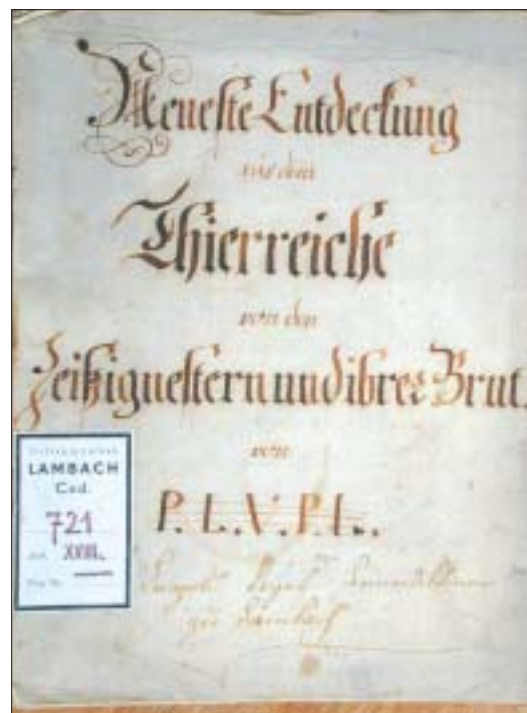 Neueste Entdeckung
aus dem
Thierreiche
von den
Zeißignestern und ihrer Brut.
von
P. L. V. P. L.
LAMBACH
Cod.
721
XVIII.
zu Lambach